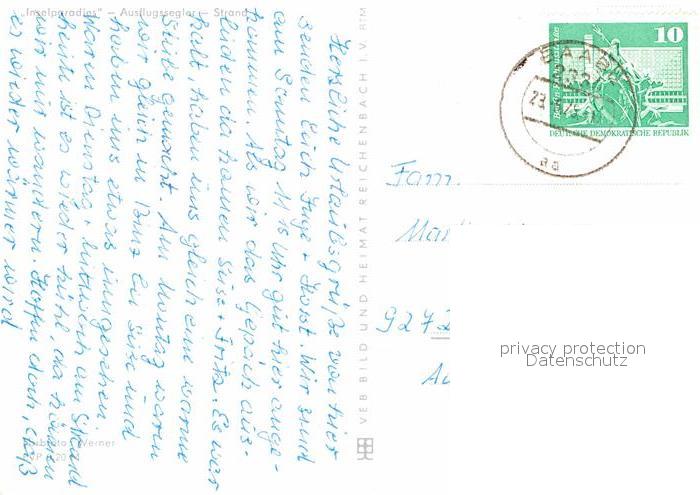 „Inselparadies" — Ausflugssegler — Strand
Herzliche Urlaubsgrüße von hier
senden Euch Inge + Horst. Wir sind
am Sonntag 11 Uhr gut hier ange-
kommen. Als wir das Gepäck aus-
luden da kamen Suse + Fritz. Es war
kalt, haben uns gleich eine warme
Bude gemacht. Am Montag waren
wir gleich in Binz bei Suse und
haben uns etwas umgesehen.
Waren Dienstag + Mittwoch am Strand
heut ist es wieder kühl, da können
wir nur wandern. Hoffen doch, daß
es wieder wärmer wird
Werner
VEB BILD UND HEIMAT REICHENBACH I. V. BTM
10
DEUTSCHE DEMOKRATISCHE REPUBLIK
BAABE
aa
Fam.
927
privacy protection
Datenschutz